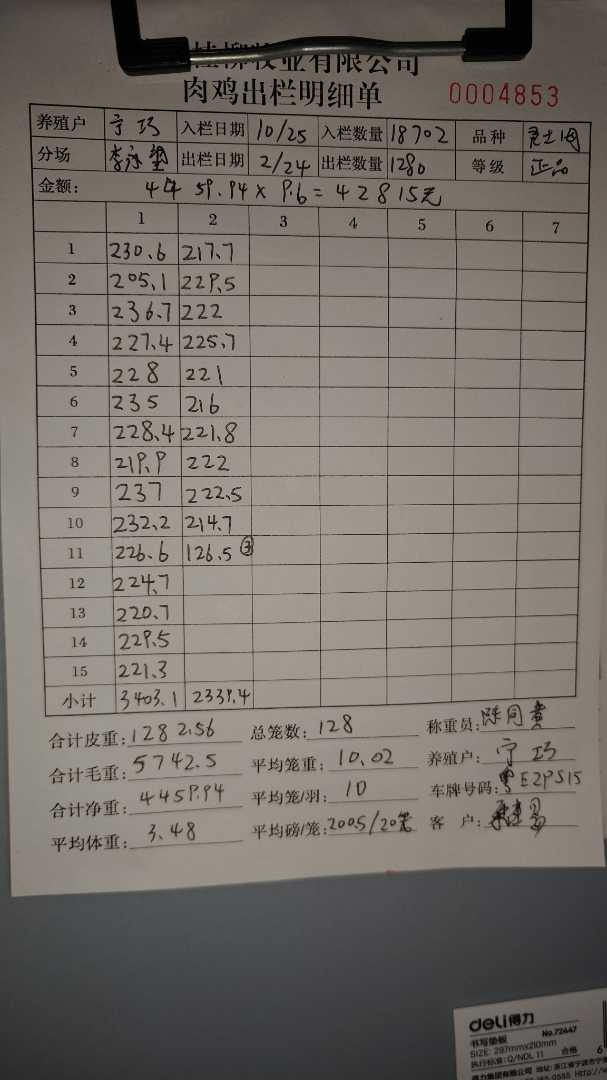 桂柳牧业有限公司
肉鸡出栏明细单 0004853
养殖户 宁巧 入栏日期 10/25 入栏数量 18702 品种
分场 李永 出栏日期 2/24 出栏数量 1280 等级 正品
金额: 44 59.94 x 9.6 = 42815元
1 2 3 4 5 6 7
1 230.6 217.7
2 205.1 229.5
3 236.7 222
4 227.4 225.7
5 228 221
6 235 216
7 228.4 221.8
8 219.9 222
9 237 222.5
10 232.2 214.7
11 226.6 126.5 ③
12 224.7
13 220.7
14 229.5
15 221.3
小计 3403.1 2339.4
合计皮重: 1282.56 总笼数: 128 称重员: 陈同贵
合计毛重: 5742.5 平均笼重: 10.02 养殖户: 宁巧
合计净重: 4459.94 平均笼/羽: 10 车牌号码: 粤E2PS15
平均体重: 3.48 平均磅/笼: 2005/20笼 客 户:
deli得力
书写垫板 No.72447
SIZE: 297mmx210mm
执行标准: Q/NDL 11 合格
得力集团有限公司 地址: 浙江省宁波市宁